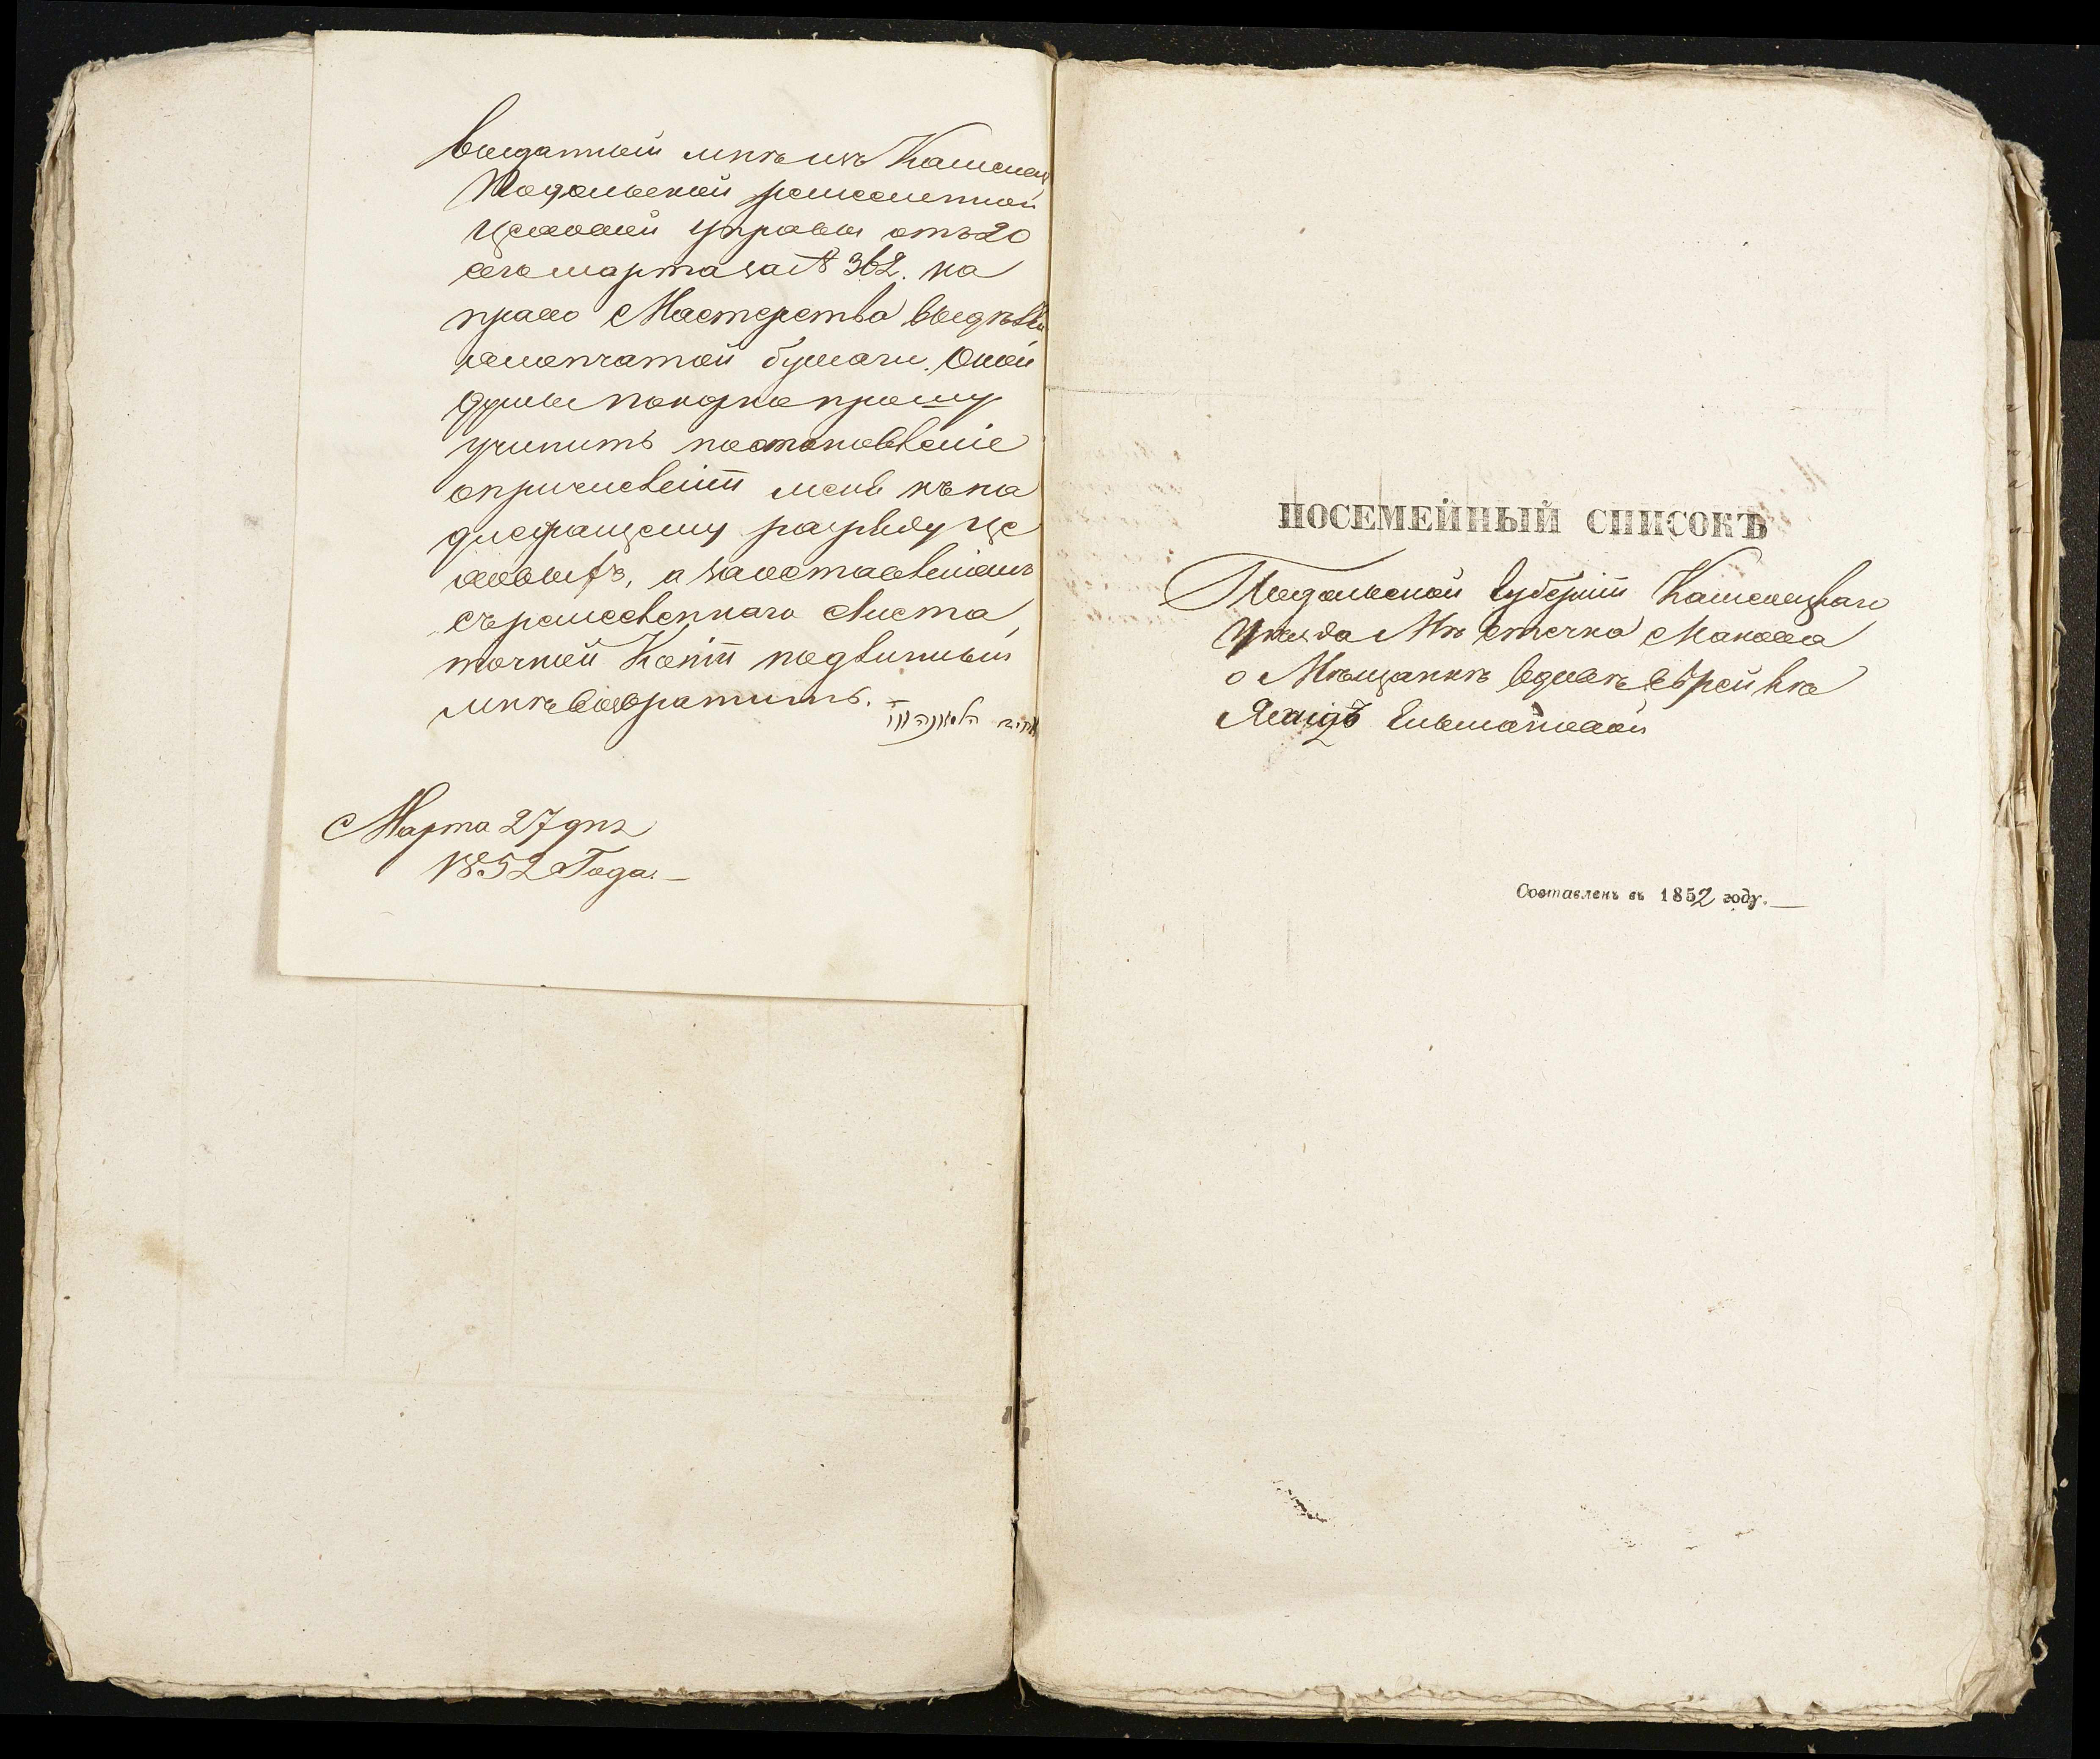 выданный мнѣ изъ Каменец
Подольской ремесленной
Цеховой Управы отъ 20
сего марта за № 362. на
право Мастерства выдѣлки
хлопчатой бумаги. Оной
Думы покорно прошу
учинить постановленіе
опричисленіи меня къ на
длежащему разряду це
ховыхъ, и заоставленіемъ
съремесленнаго Листа,
точной Копіи подлинный
мнѣ возвратить. —
Марта 27 дня
1852 Года. —
ПОСЕМЕЙНЫЙ СПИСОКЪ
Подольской Губерніи Каменецкаго
Уѣзда Мѣстечка Макова
о Мѣщанкѣ вдовѣ еврейкѣ
Составленъ въ 1852 году. —